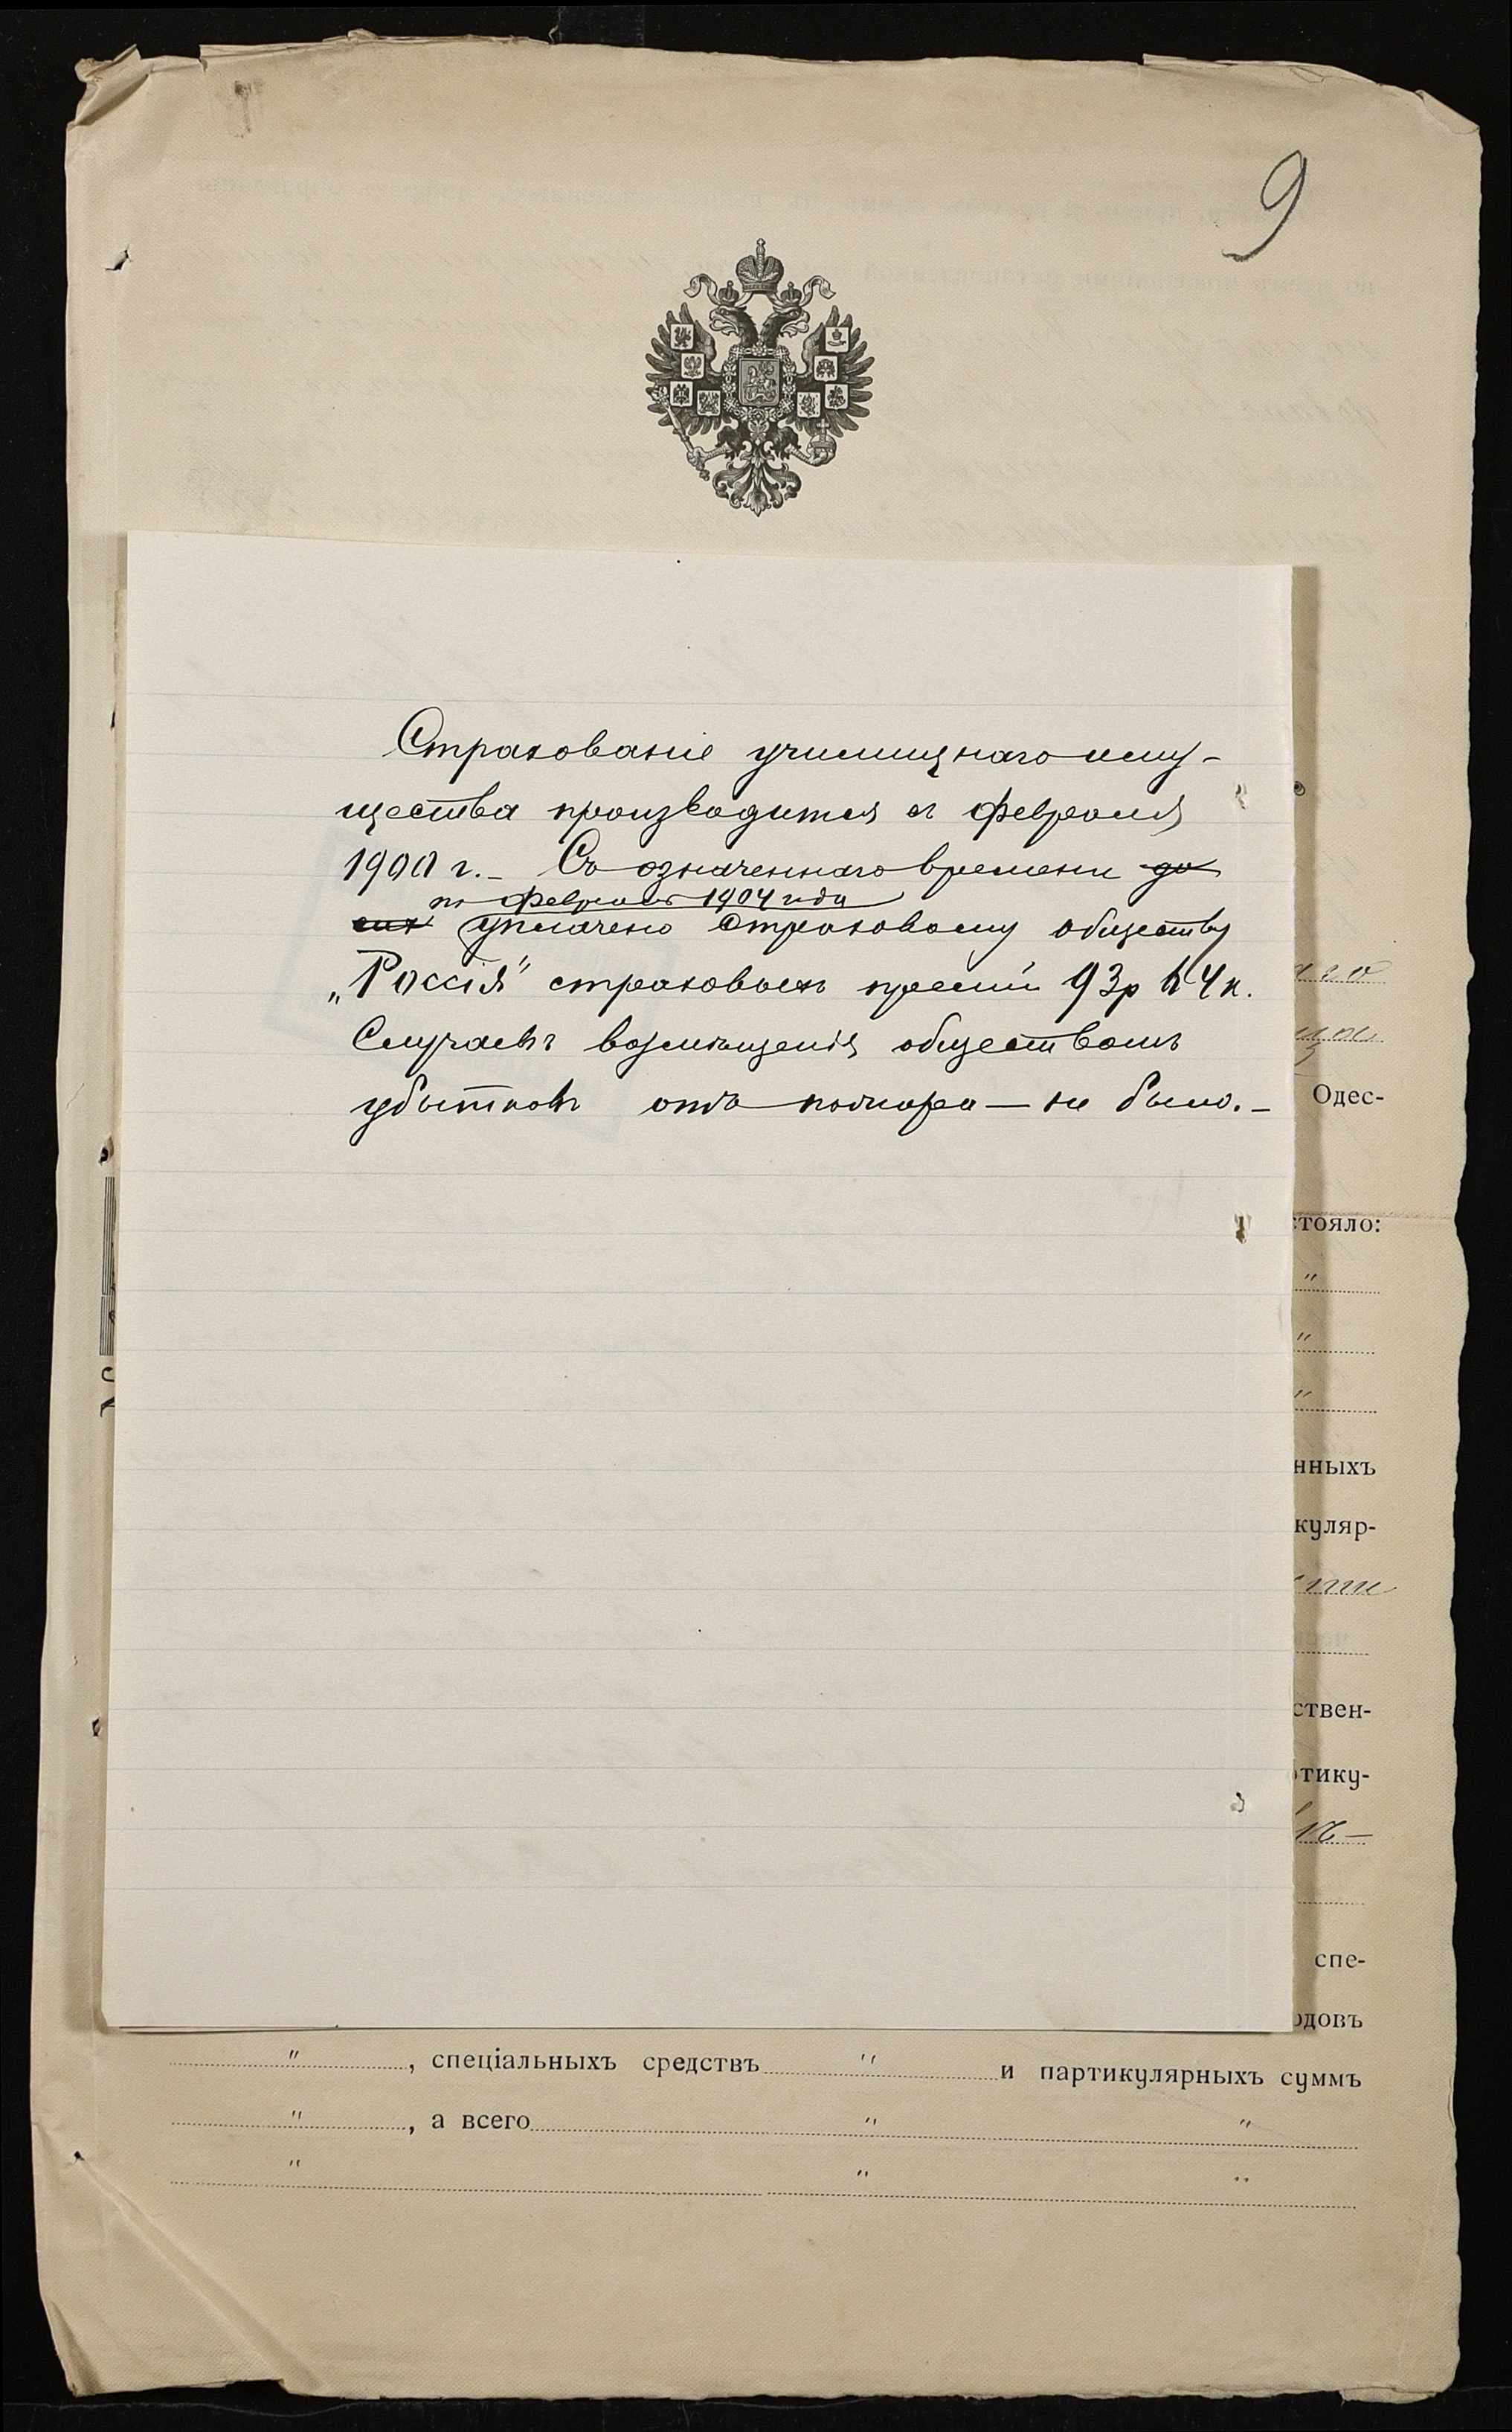 9
Страхованіе училищнаго иму-
щества производится съ Февраля
1900 г. – Съ означеннаго времени до
по Февраль 1904 года
сих уплачено Страховому обществу
„Россія" страховыхъ премій 93р 64к.
Случаевъ возмѣщенія обществомъ
убытковъ отъ пожара — не было. –
Одес-
стояло:
"
"
"
нныхъ
куляр-
ствен-
тику-
спе-
одовъ
" , спеціальныхъ средствъ " и партикулярныхъ суммъ
" , а всего " "
" " "